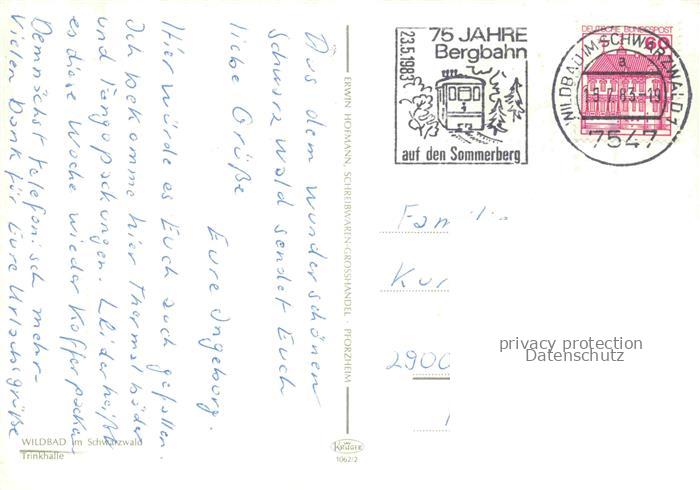 Aus dem wunderschönen
Schwarzwald sendet Euch
liebe Grüße
Eure Ingeborg.
Hier würde es Euch auch gefallen.
Ich bekomme hier Thermalbäder
und Fangopackungen. Leider heißt
es diese Woche wieder Kofferpacken
Demnächst telefonisch mehr-
Vielen Dank für Eure Urlaubsgrüße
WILDBAD im Schwarzwald
Trinkhalle
ERWIN HOFMANN, SCHREIBWAREN-GROSSHANDEL · PFORZHEIM
KRÜGER
1062/2
23.5.1983
75 JAHRE
Bergbahn
auf den Sommerberg
DEUTSCHE BUNDESPOST
60
WILDBAD IM SCHWARZWALD 1
a
7547
Fam
Kur
2900
privacy protection
Datenschutz